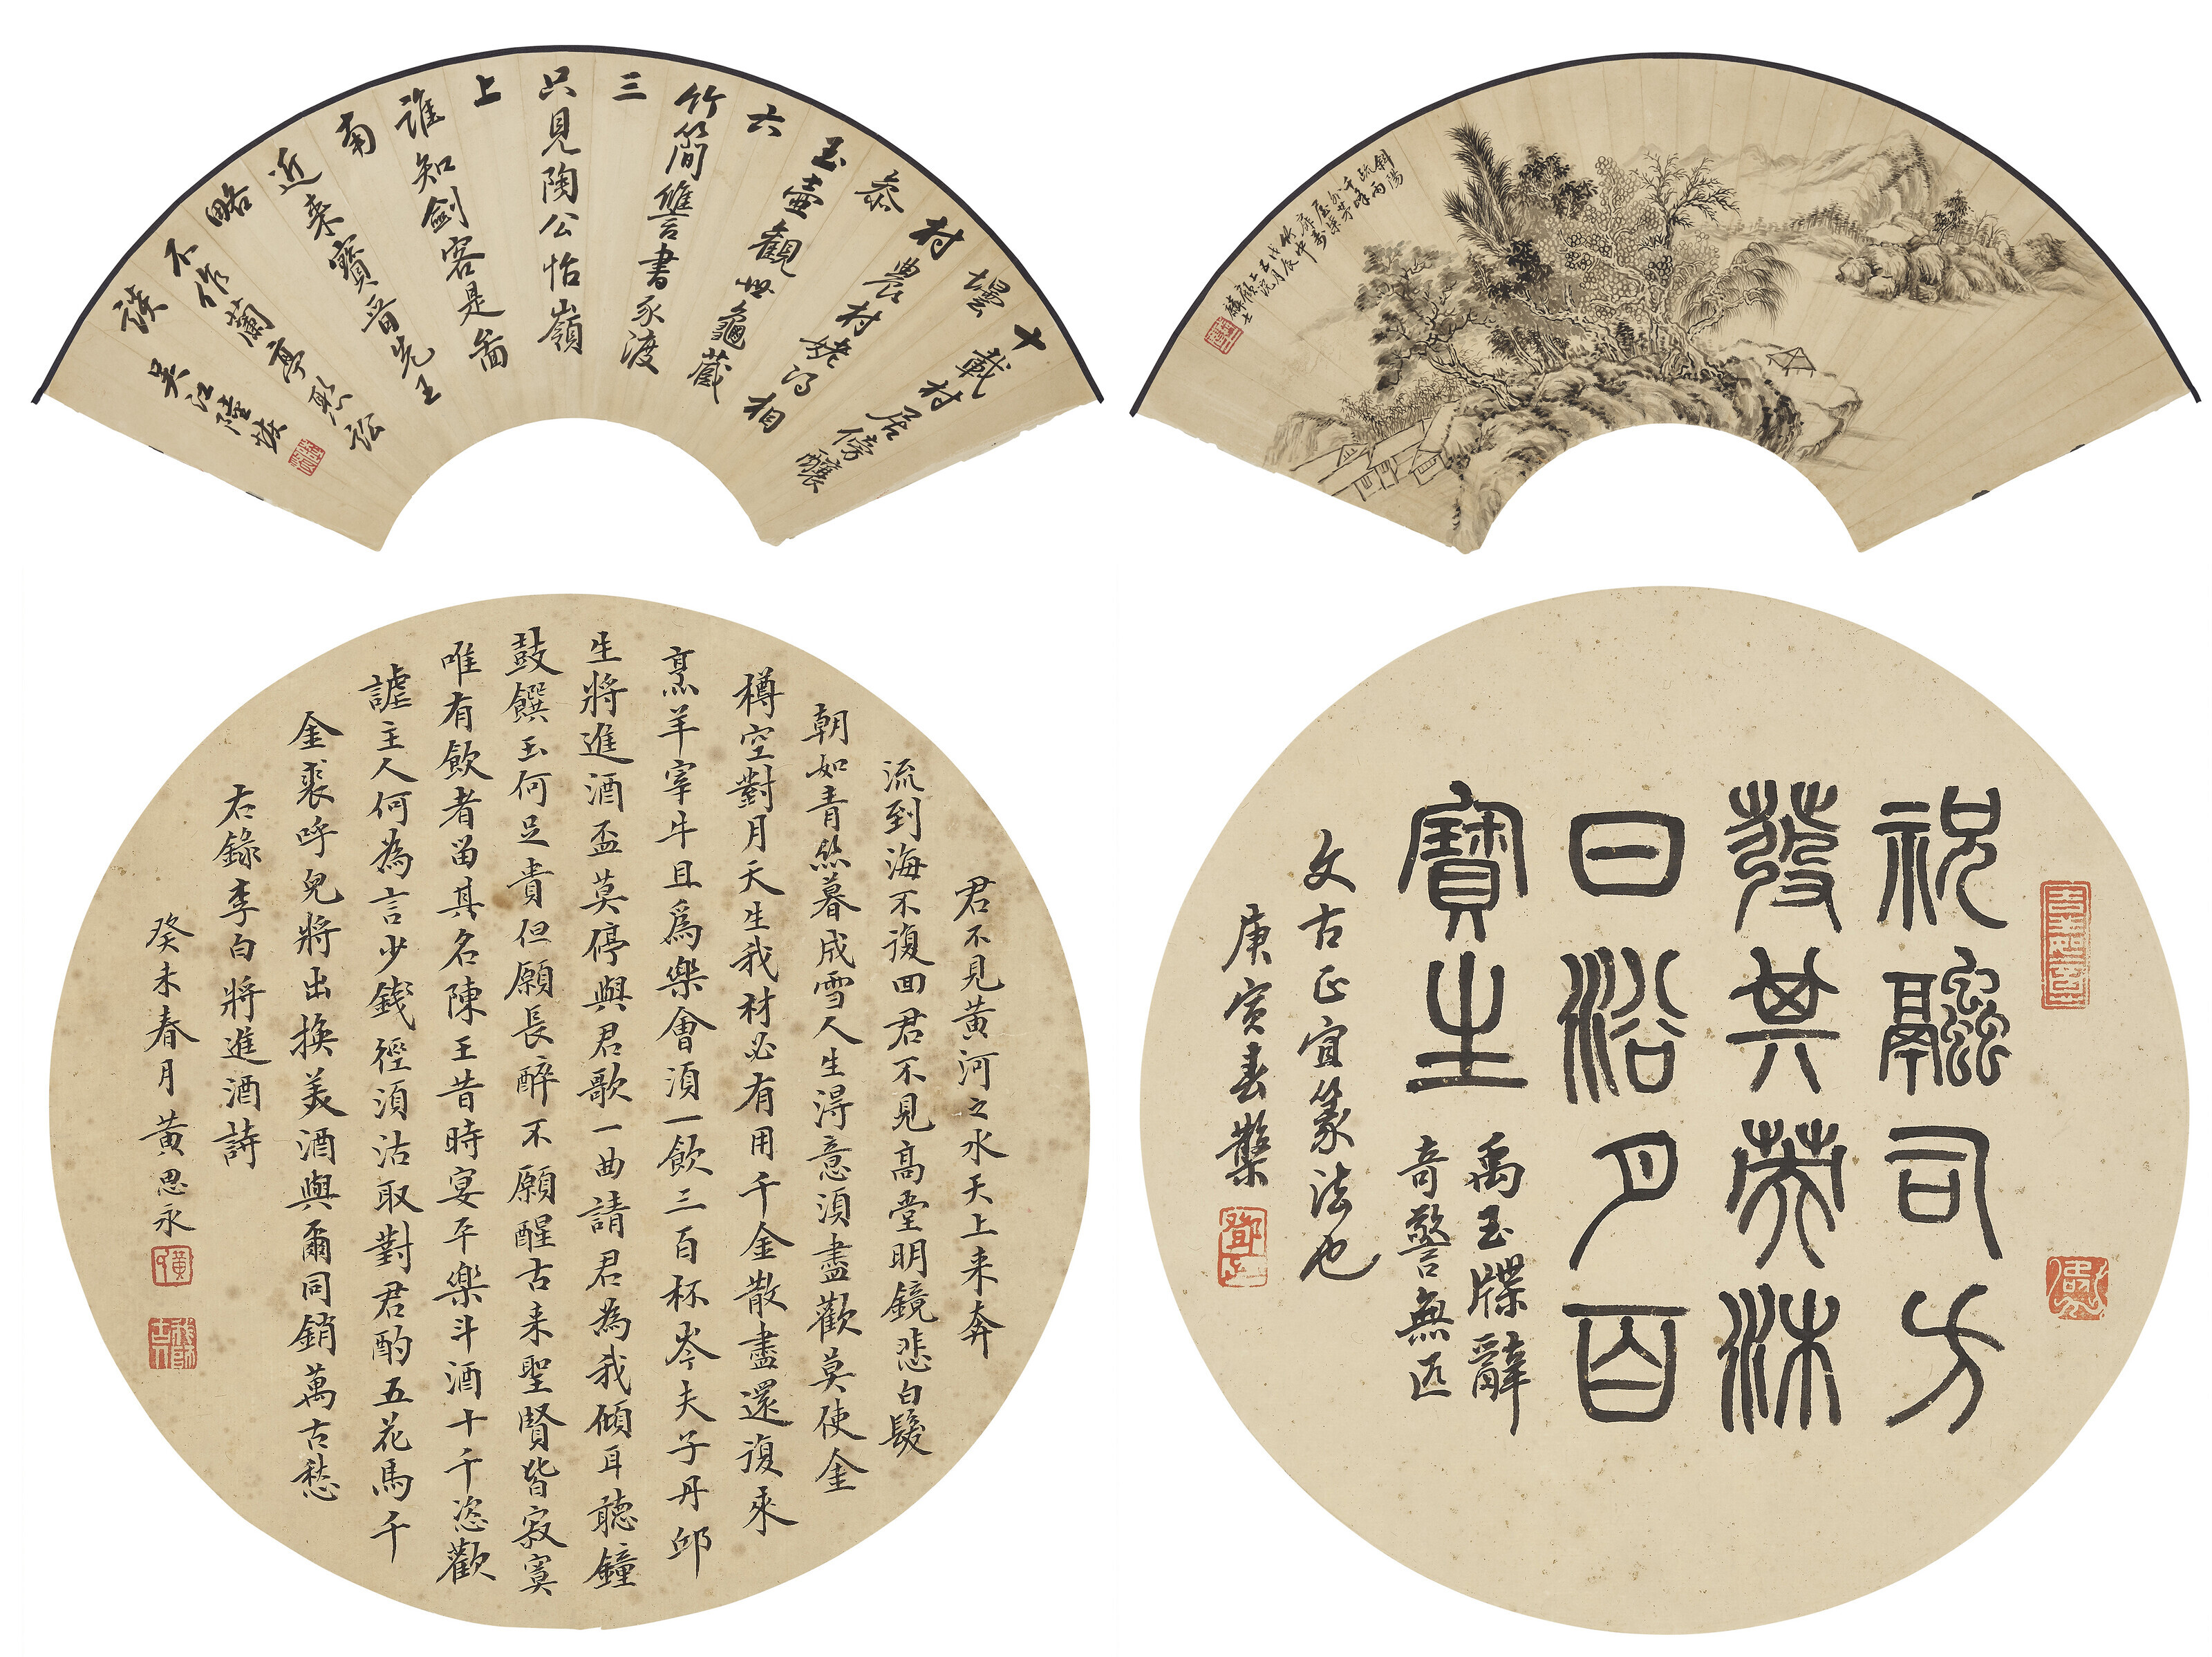 十載村居傍釀
壜
村農村姥乃相
叅
玉壺觀世龜藏
六
竹簡讐書豕渡
三
只見陶公怡嶺
上
誰知劍客是啚
南
近来寶晉先王
略
不作蘭亭聚訟
談
吳江陸恢
斜陽
疏雨
千峰
外茅
屋柴
扉萬
竹中
戊辰
七月
上沅
顧
麟士
君不見黃河之水天上来奔
流到海不復回君不見高堂明鏡悲白髮
朝如青絲暮成雪人生得意須盡歡莫使金
樽空對月天生我材必有用千金散盡還復來
烹羊宰牛且爲樂會須一飲三百杯岑夫子丹邱
生將進酒盃莫停與君歌一曲請君為我傾耳聽鐘
鼓饌玉何足貴但願長醉不願醒古来聖賢皆寂寞
唯有飲者留其名陳王昔時宴平樂斗酒十千恣歡
謔主人何為言少錢徑須沽取對君酌五花馬千
金裘呼兒將出換美酒與爾同銷萬古愁
右錄李白將進酒詩
癸未春月黃思永
祝融司方
發其英沐
日浴月百
寶生
禹玉牒辭
奇警無匹
文古正宜篆法也
庚寅春蘩